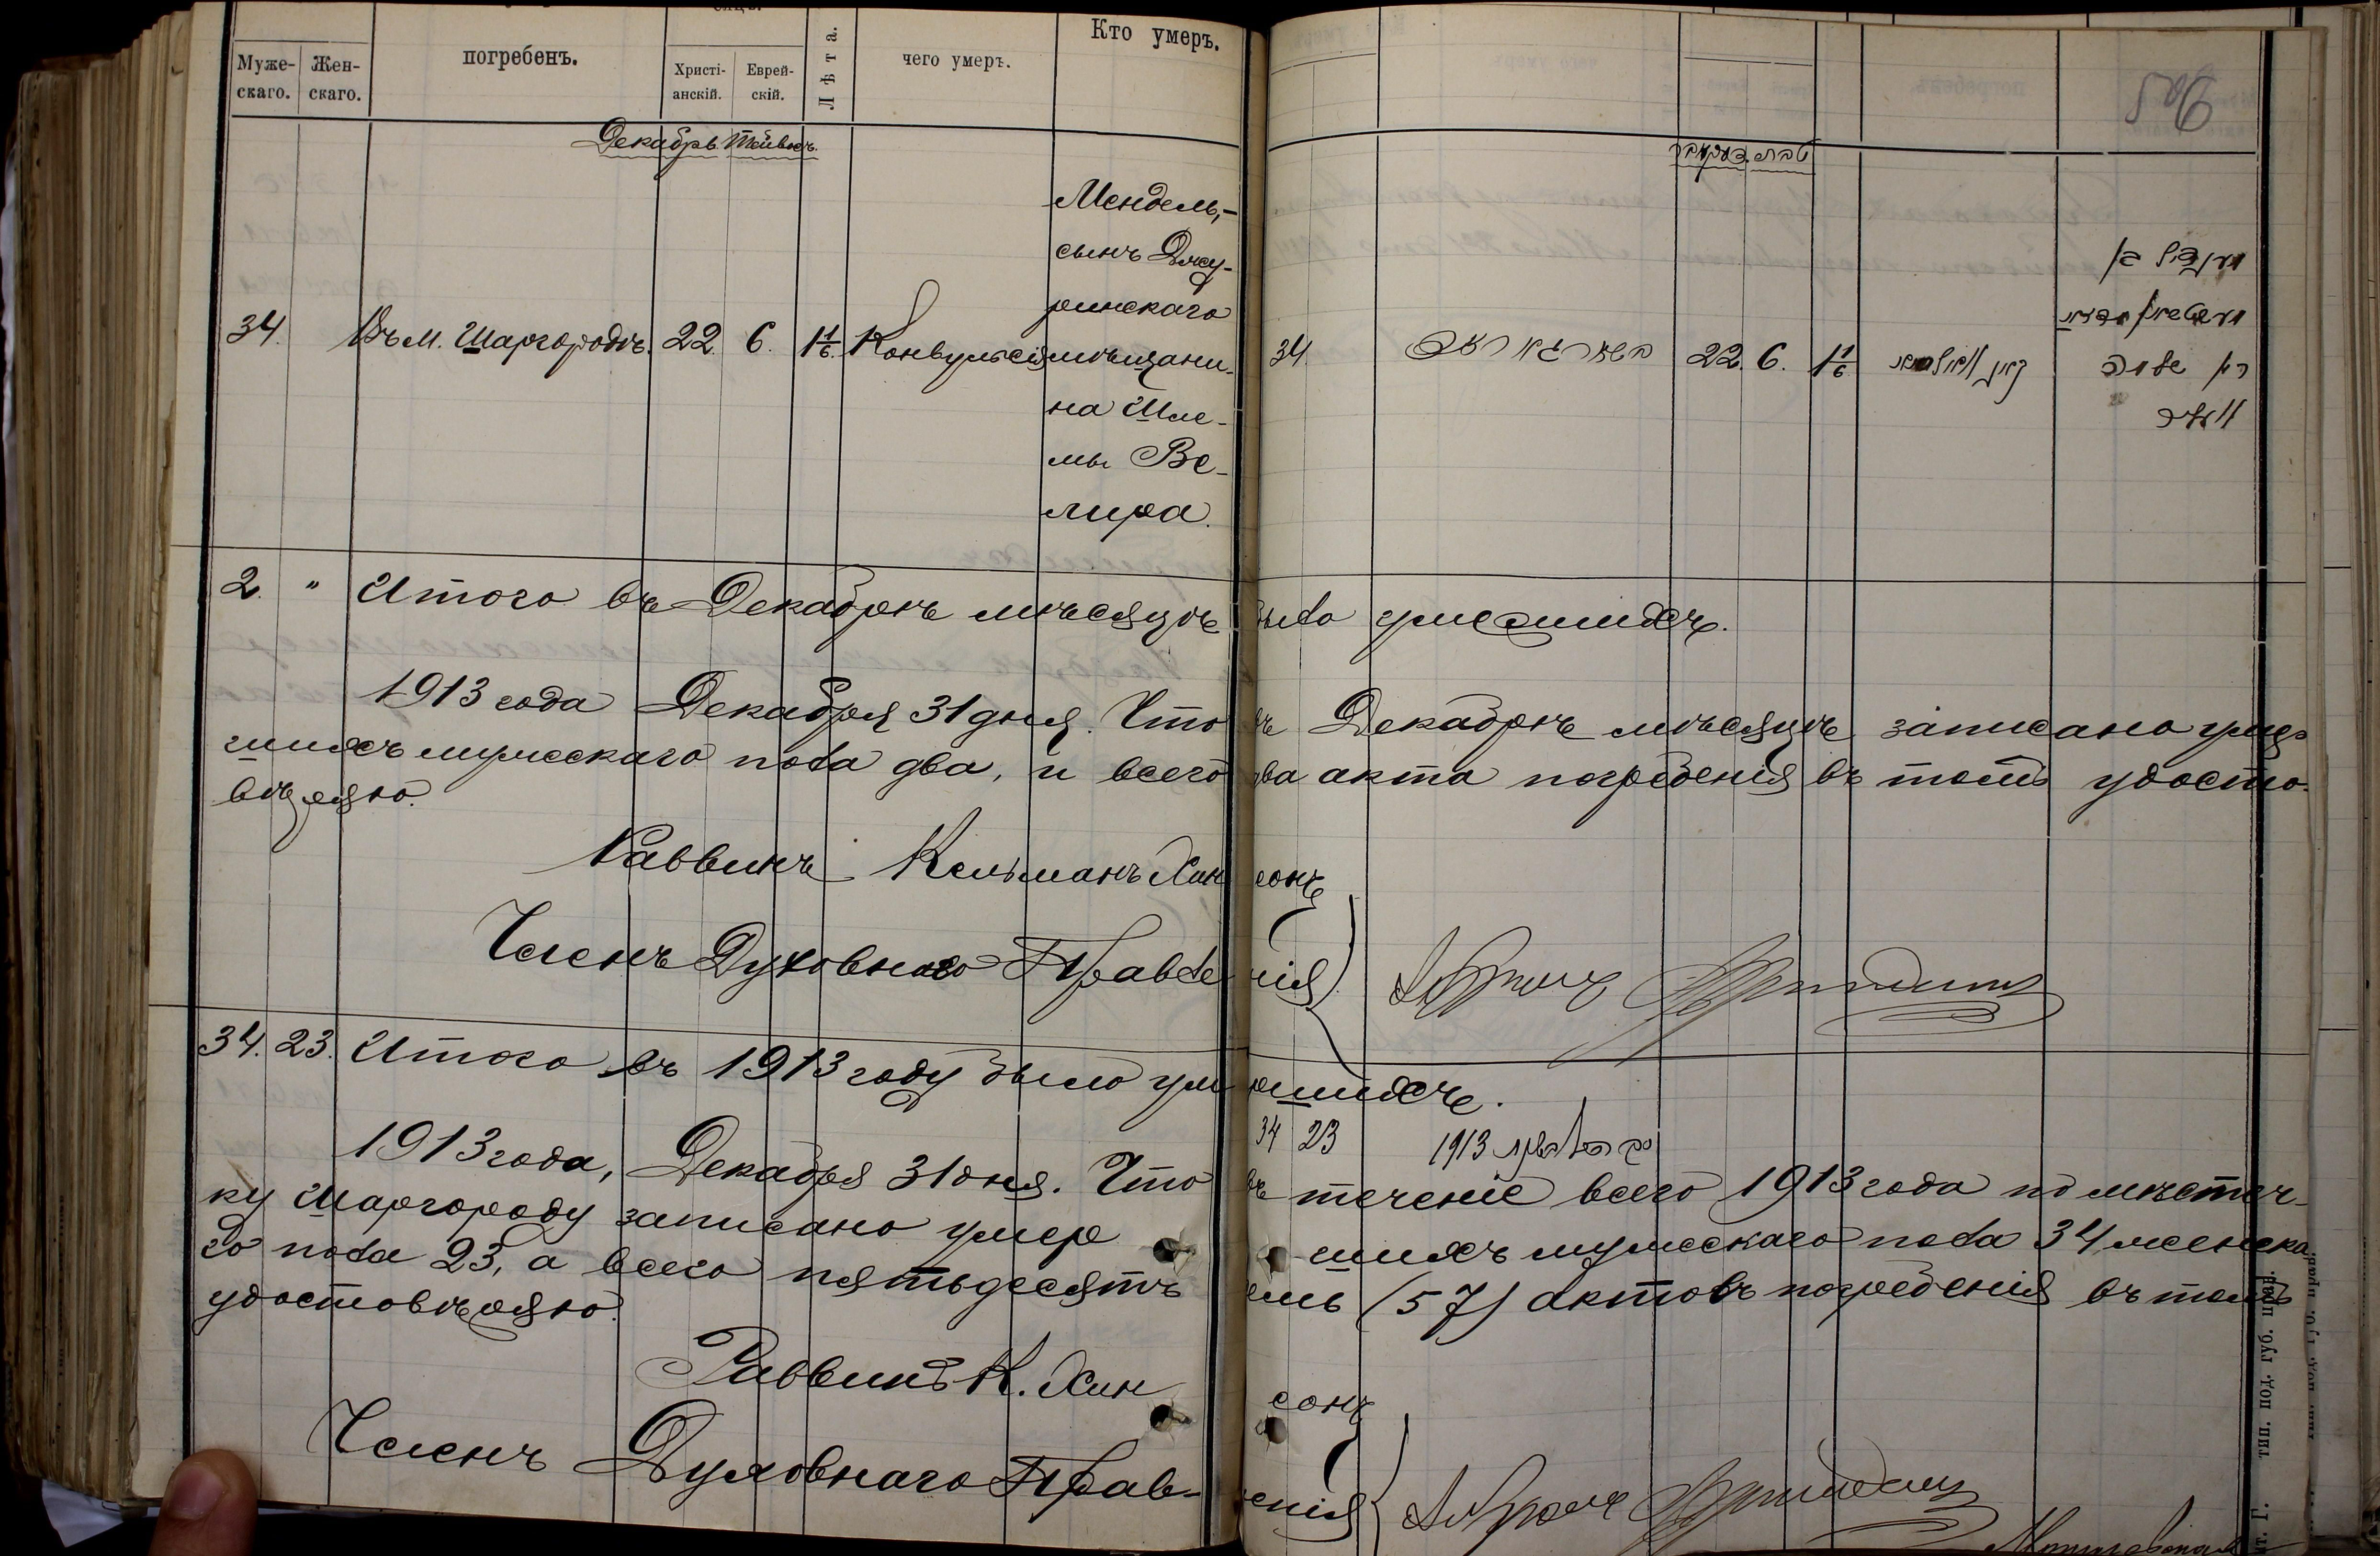 Муже-
скаго.
Жен-
скаго.
погребенъ.
Христі-
анскій.
Еврей-
скій.
Лѣта.
чего умеръ.
Кто умеръ.
Декабрь Тейвесъ.
34.
Въ м. Шаргородѣ.
22.
6.
1 1/6.
Конвульсія
Мендель,-
сынъ Джу-
ринскаго
мѣщани-
на Шле-
мы Ве-
лира.
34.
22.
6.
1 1/6
2. " Итого въ Декабрѣ мѣсяцѣ было умершихъ.
1913 года Декабря 31 дня. Что въ Декабрѣ мѣсяцѣ записано умер-
шихъ мужескаго пола два, и всего два акта погребенія въ томъ удосто-
вѣряю.
Раввинъ Кельманъ Хинсонъ
Членъ Духовнаго Правленія
34. 23. Итого въ 1913 году было умершихъ.
34 23 1913
1913 года, Декабря 31 дня. Что въ теченіе всего 1913 года по мѣстеч-
ку Шаргороду записано умершихъ мужескаго пола 34, женска-
го пола 23, а всего пятьдесятъ семь (57) актовъ погребенія въ томъ
удостовѣряю.
Раввинъ К. Хинсонъ
Членъ Духовнаго Правленія
тип. под. губ. прав.